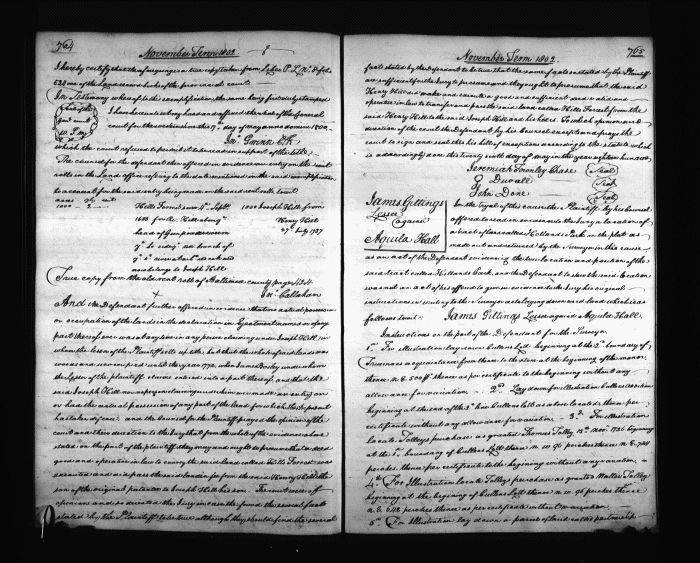 764
November Term 1802
I hereby certify that the foregoing is a true copy taken from Liber P. L. No. 8 folio
528 one of the Land record books of the provincial court.
In Testimony whereof to this exemplification the same being first duly stamped
I have hereunto set my hand and affixed the seal of the General
court for the western shore this 17th day of may anno domini 1800.
Jno. Gwinn Clk
which the court refused to permit to be read in support of the title.
The counsel for the defendant then offered in evidence an entry on the rent
rolls in the Land office referring to the date mentioned in the said exemplification
to account for the said entry being made on the said rent rolls to wit
acres
1000
Hills Forrest sur 9th Sept.
1000 Joseph Hill from
1683 for Rd. Hill along
Henry Hill
head of Gunpowder river
27th July 1737
ye. So. side ye. No. branch of
marsh belongs to Joseph Hill
True copy from the old rent roll of Baltimore county page 424
Jno. Callahan
And the Defendant further offered in evidence that no actual possession
or occupation of the lands in the declaration in Ejectment named or of any
part thereof ever was in any person claiming under Joseph Hill, in
whom the lessor of the Plaintiff sets up title, but that the whole of said land was
woods and unoccupied until the year 1772, when James Bosley under whom
the Lessor of the plaintiff claims entered into a part thereof, and that the
said Joseph Hill nor any person claiming under him ever made an entry on
or had the actual possession of any part of the land for which the Defendant
has taken defence. and the counsel for the Plaintiff prayed the opinion of the
court and their direction to the Jury that from the whole of the evidence above
stated on the part of the plaintiff they may and ought to presume that a deed
good and operative in law to convey the said land called Hills Forrest was
executed and did pass the said land in fee from the said Henry Hill the
son of the original patentee to Joseph Hill his son. The court were of
opinion and so directed the Jury in case they found the several facts
stated by the Plaintiff to be true although they should find the several
765
November Term 1802
facts stated by the Defendant to be true that the same facts as stated by the Plaintiff
are sufficient for the Jury to presume and they ought to presume that the said
Henry Hill did make and execute a good and sufficient deed valid and
operative in law to transfer and pass the said land called Hills Forrest from the
said Henry Hill to the said Joseph Hill and his heirs. To which opinion and
direction of the court the Defendant by his Counsel excepts and prays the
court to sign and seal this his bill of exceptions according to the statute which
is accordingly done this twenty sixth day of May in the year eighteen hundred.
Jeremiah Townley Chase (Seal)
G Duvall (Seal)
John Done (Seal)
James Gittings
Lessee
against
Aquila Hall
In the tryal of this cause the Plaintiff by his counsel
offered to read in evidence to the Jury a location of
a tract of land called Hollands Park in the plat as
made out and returned by the Surveyor in this cause
as an act of the Defendant evincing the true location and position of the
said tract called Hollands Park, and the Defendant to shew the said Location
was not an act of his offered to give in evidence to the Jury his original
instructions in writing to the Surveyor as to laying down said land which is as
follows to wit: James Gittings Lessee against Aquila Hall.
Instructions on the part of the Defendant for the Surveyor
1st For illustration lay down Cullens Lott beginning at the 3d. boundary of
allowance for variation.
2nd. Lay down for illustration Cullens addition
beginning at the end of the 3d line Cullens lott as above located thence per
certificate without any allowance for variation. 3d. For illustration
Locate Talleys purchase as granted Thomas Talley 12th Novr. 1726 beginning
at the 1st boundary of Cullens Lott thence
perches thence per certificate to the beginning without any variation.
4th For Illustration locate Talleys purchase as granted Walter Talley
beginning at the beginning of Cullens Lott thence n. w. 96 perches thence
perches thence as per certificate without variation.
5th For Illustration lay down a parcel of land called partnership